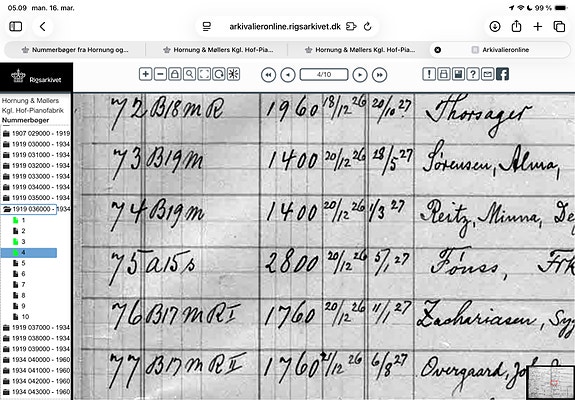 05.09 man. 16. mar.
99 %
arkivalieronline.rigsarkivet.dk
Nummerbøger fra Hornung og...
Hornung & Møllers Kgl. Hof-Pia...
Hornung & Møllers Kgl. Hof-Pia...
Arkivalieronline
Rigsarkivet
4/10
Hornung & Møllers
Kgl. Hof-Pianofabrik
Nummerbøger
1907 029000 - 1919
1919 030000 - 1934
1919 031000 - 1934
1919 032000 - 1934
1919 033000 - 1934
1919 034000 - 1934
1919 035000 - 1934
1919 036000 - 1934
1
2
3
4
5
6
7
8
9
10
1919 037000 - 1934
1919 038000 - 1934
1919 039000 - 1934
1934 040000 - 1960
1934 041000 - 1960
1934 042000 - 1960
1934 043000 - 1960
72 B18 m R 1960 18/12 26 20/10 27 Thorsager
73 B19 m 1400 20/12 26 28/5 27 Sørensen, Alma,
74 B19 m 1400 20/12 26 1/3 27 Reitz, Minna,
75 a15 s 2800 20/12 26 5/1 27 Fönss,
76 B17 m R I 1760 20/12 26 11/1 27 Zachariasen,
77 B17 m R II 1760 21/12 26 6/8 27 Overgaard,